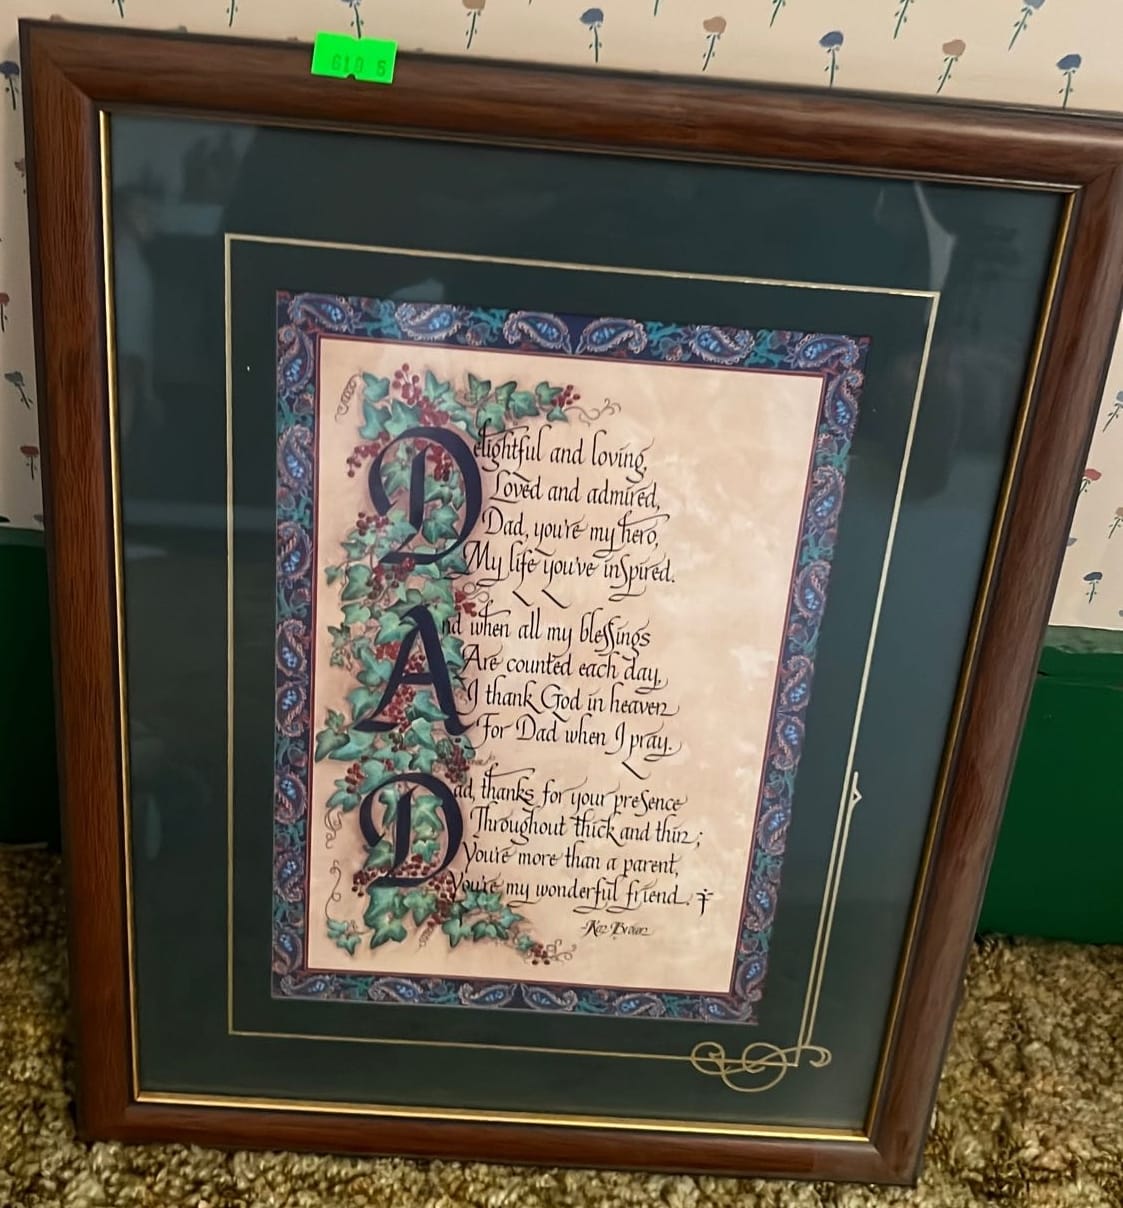 610 5
Delightful and loving,
Loved and admired,
Dad, you're my hero,
My life you've inspired.
And when all my blessings
Are counted each day,
I thank God in heaven
For Dad when I pray.
Dad, thanks for your presence
Throughout thick and thin;
You're more than a parent,
You're my wonderful friend.
-Kaz Brown